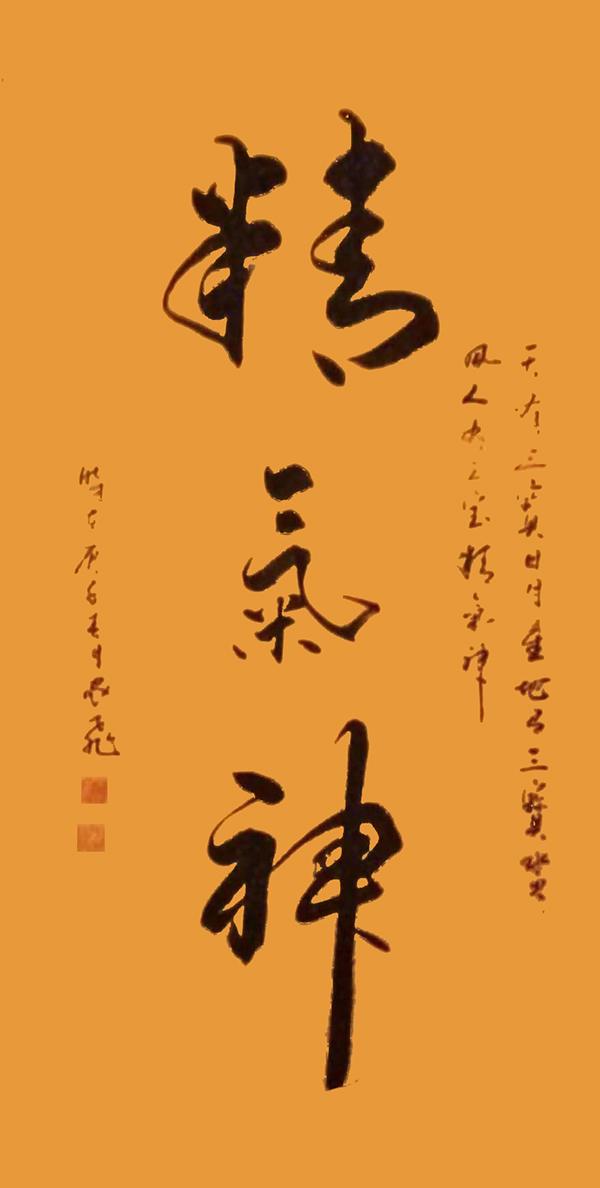 天有三寶日月星地有三寶水火
風人有三宝精氣神
精氣神
時在庚子春月